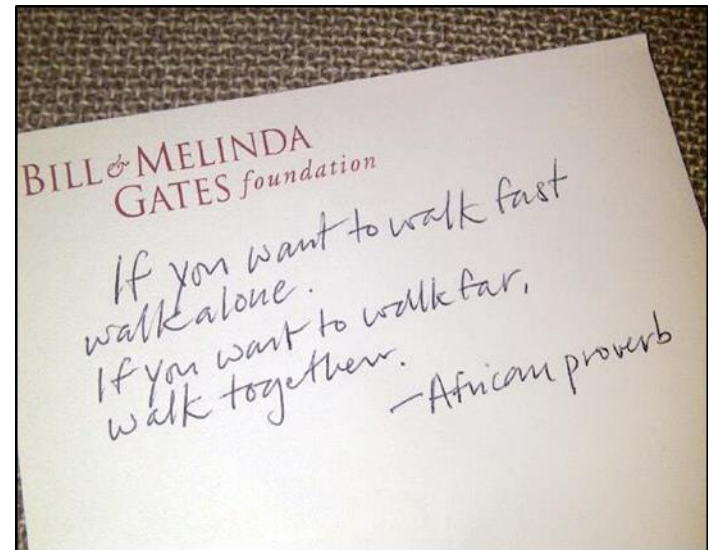 BILL & MELINDA
GATES foundation
If you want to walk fast
walk alone.
If you want to walk far,
walk together.
—African proverb